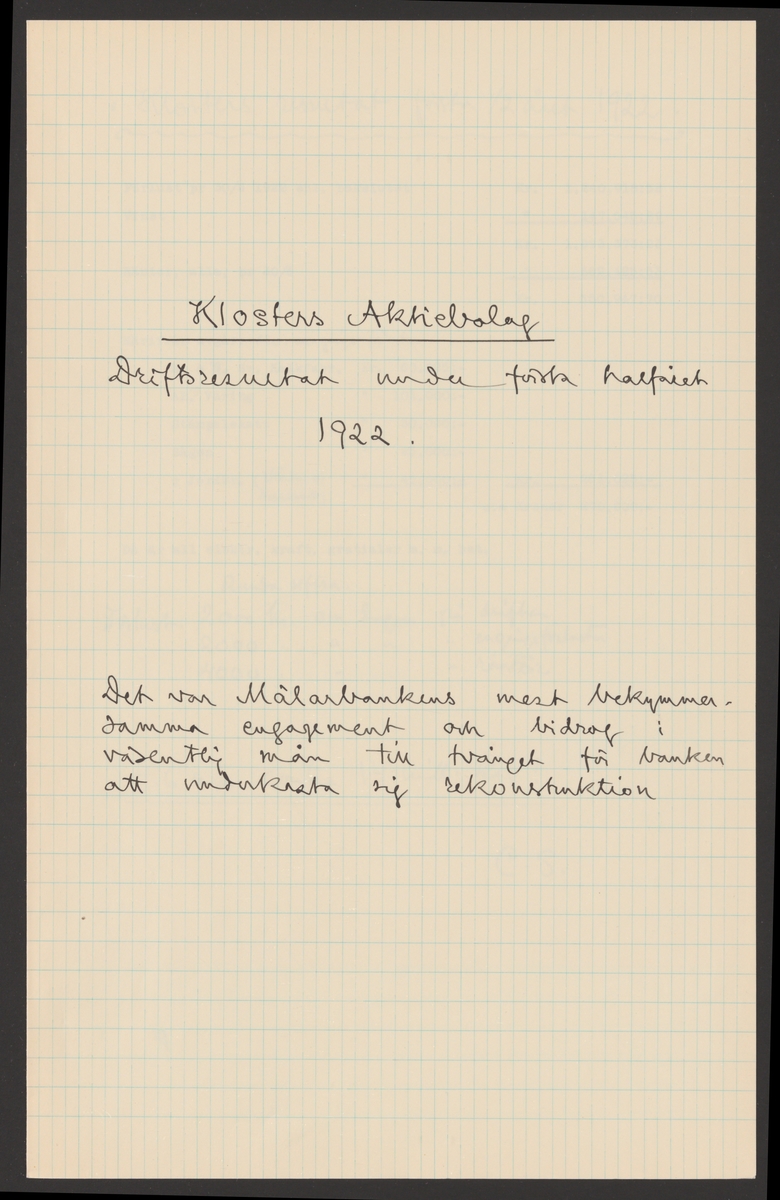 Klosters Aktiebolag
Driftsresultat under första halfåret
1922.
Det var Mälarbankens mest bekymmer-
samma engagement och bidrog i
väsentlig mån till tvånget för banken
att underkasta sig rekonstruktion